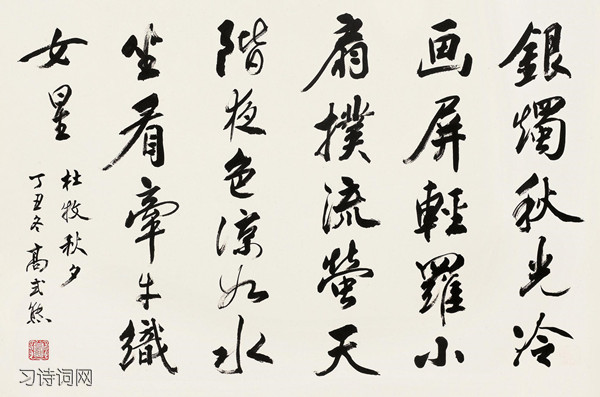 銀燭秋光冷
画屏輕羅小
扇撲流螢天
階夜色涼如水
坐看牽牛織
女星
杜牧秋夕
丁丑冬高式熊
习诗词网